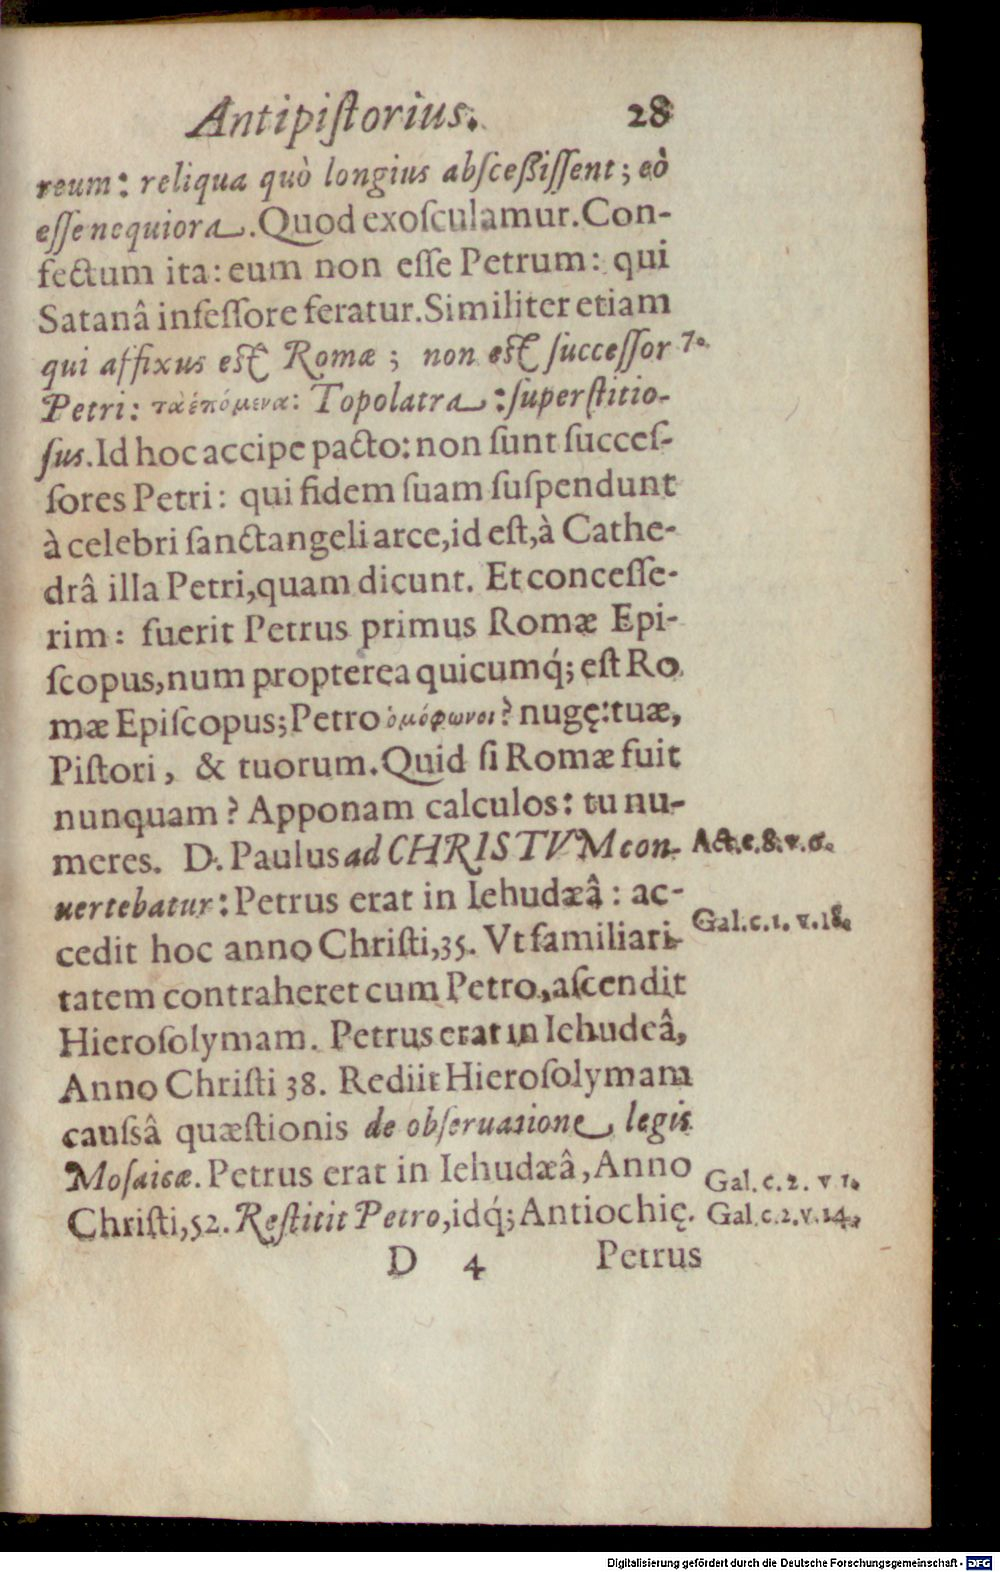 Antipiſtorius. 28
reum: reliqua quò longius abſceßiſſent; eò
eſſe nequiora. Quod exoſculamur. Con-
fectum ita: eum non eſſe Petrum: qui
Satanâ inſeſſore feratur. Similiter etiam
qui affixus eſt Romæ; non eſt ſucceſſor 7.
Petri: τὰ ἑπόμενα: Topolatra: ſuperſtitio-
ſus. Id hoc accipe pacto: non ſunt ſucceſ-
ſores Petri: qui fidem ſuam ſuſpendunt
à celebri ſanctangeli arce, id eſt, à Cathe-
drâ illa Petri, quam dicunt. Et conceſſe-
rim: fuerit Petrus primus Romæ Epi-
ſcopus, num propterea quicumq́; eſt Ro
mæ Epiſcopus; Petro ὁμόφωνοι? nugę: tuæ,
Piſtori, & tuorum. Quid ſi Romæ fuit
nunquam? Apponam calculos: tu nu-
meres. D. Paulus ad CHRISTVM con- Act. c. 8. v. 6.
uertebatur: Petrus erat in Iehudæâ: ac-
cedit hoc anno Chriſti, 35. Vt familiari- Gal. c. 1. v. 18.
tatem contraheret cum Petro, aſcendit
Hieroſolymam. Petrus erat in Iehudeâ,
Anno Chriſti 38. Rediit Hieroſolymam
cauſsâ quæſtionis de obſeruatione legis
Moſaicæ. Petrus erat in Iehudæâ, Anno Gal. c. 2. v 1.
Chriſti, 52. Reſtitit Petro, idq́; Antiochię. Gal. c. 2. v. 14.
D 4 Petrus
Digitalisierung gefördert durch die Deutsche Forschungsgemeinschaft - DFG